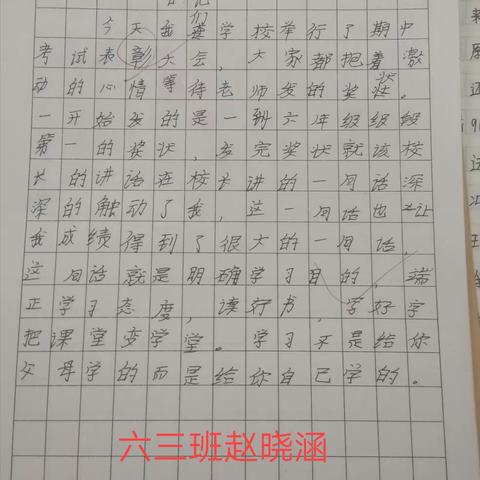 日记
今天我们学校举行了期中
考试表彰大会，大家都抱着激
动的心情等待老师发的奖状。
一开始发的是一到六年级级级
第一的奖状，发完奖状就该校
长的讲话在校长讲的一句话深
深的触动了我，这一句话也让
我成绩得到了很大的一句话，
这句话就是明确学习目的，端
正学习态度，读好书，写好字
把课堂变学堂。学习不是给你
父母学的而是给你自己学的。
六三班赵晓涵